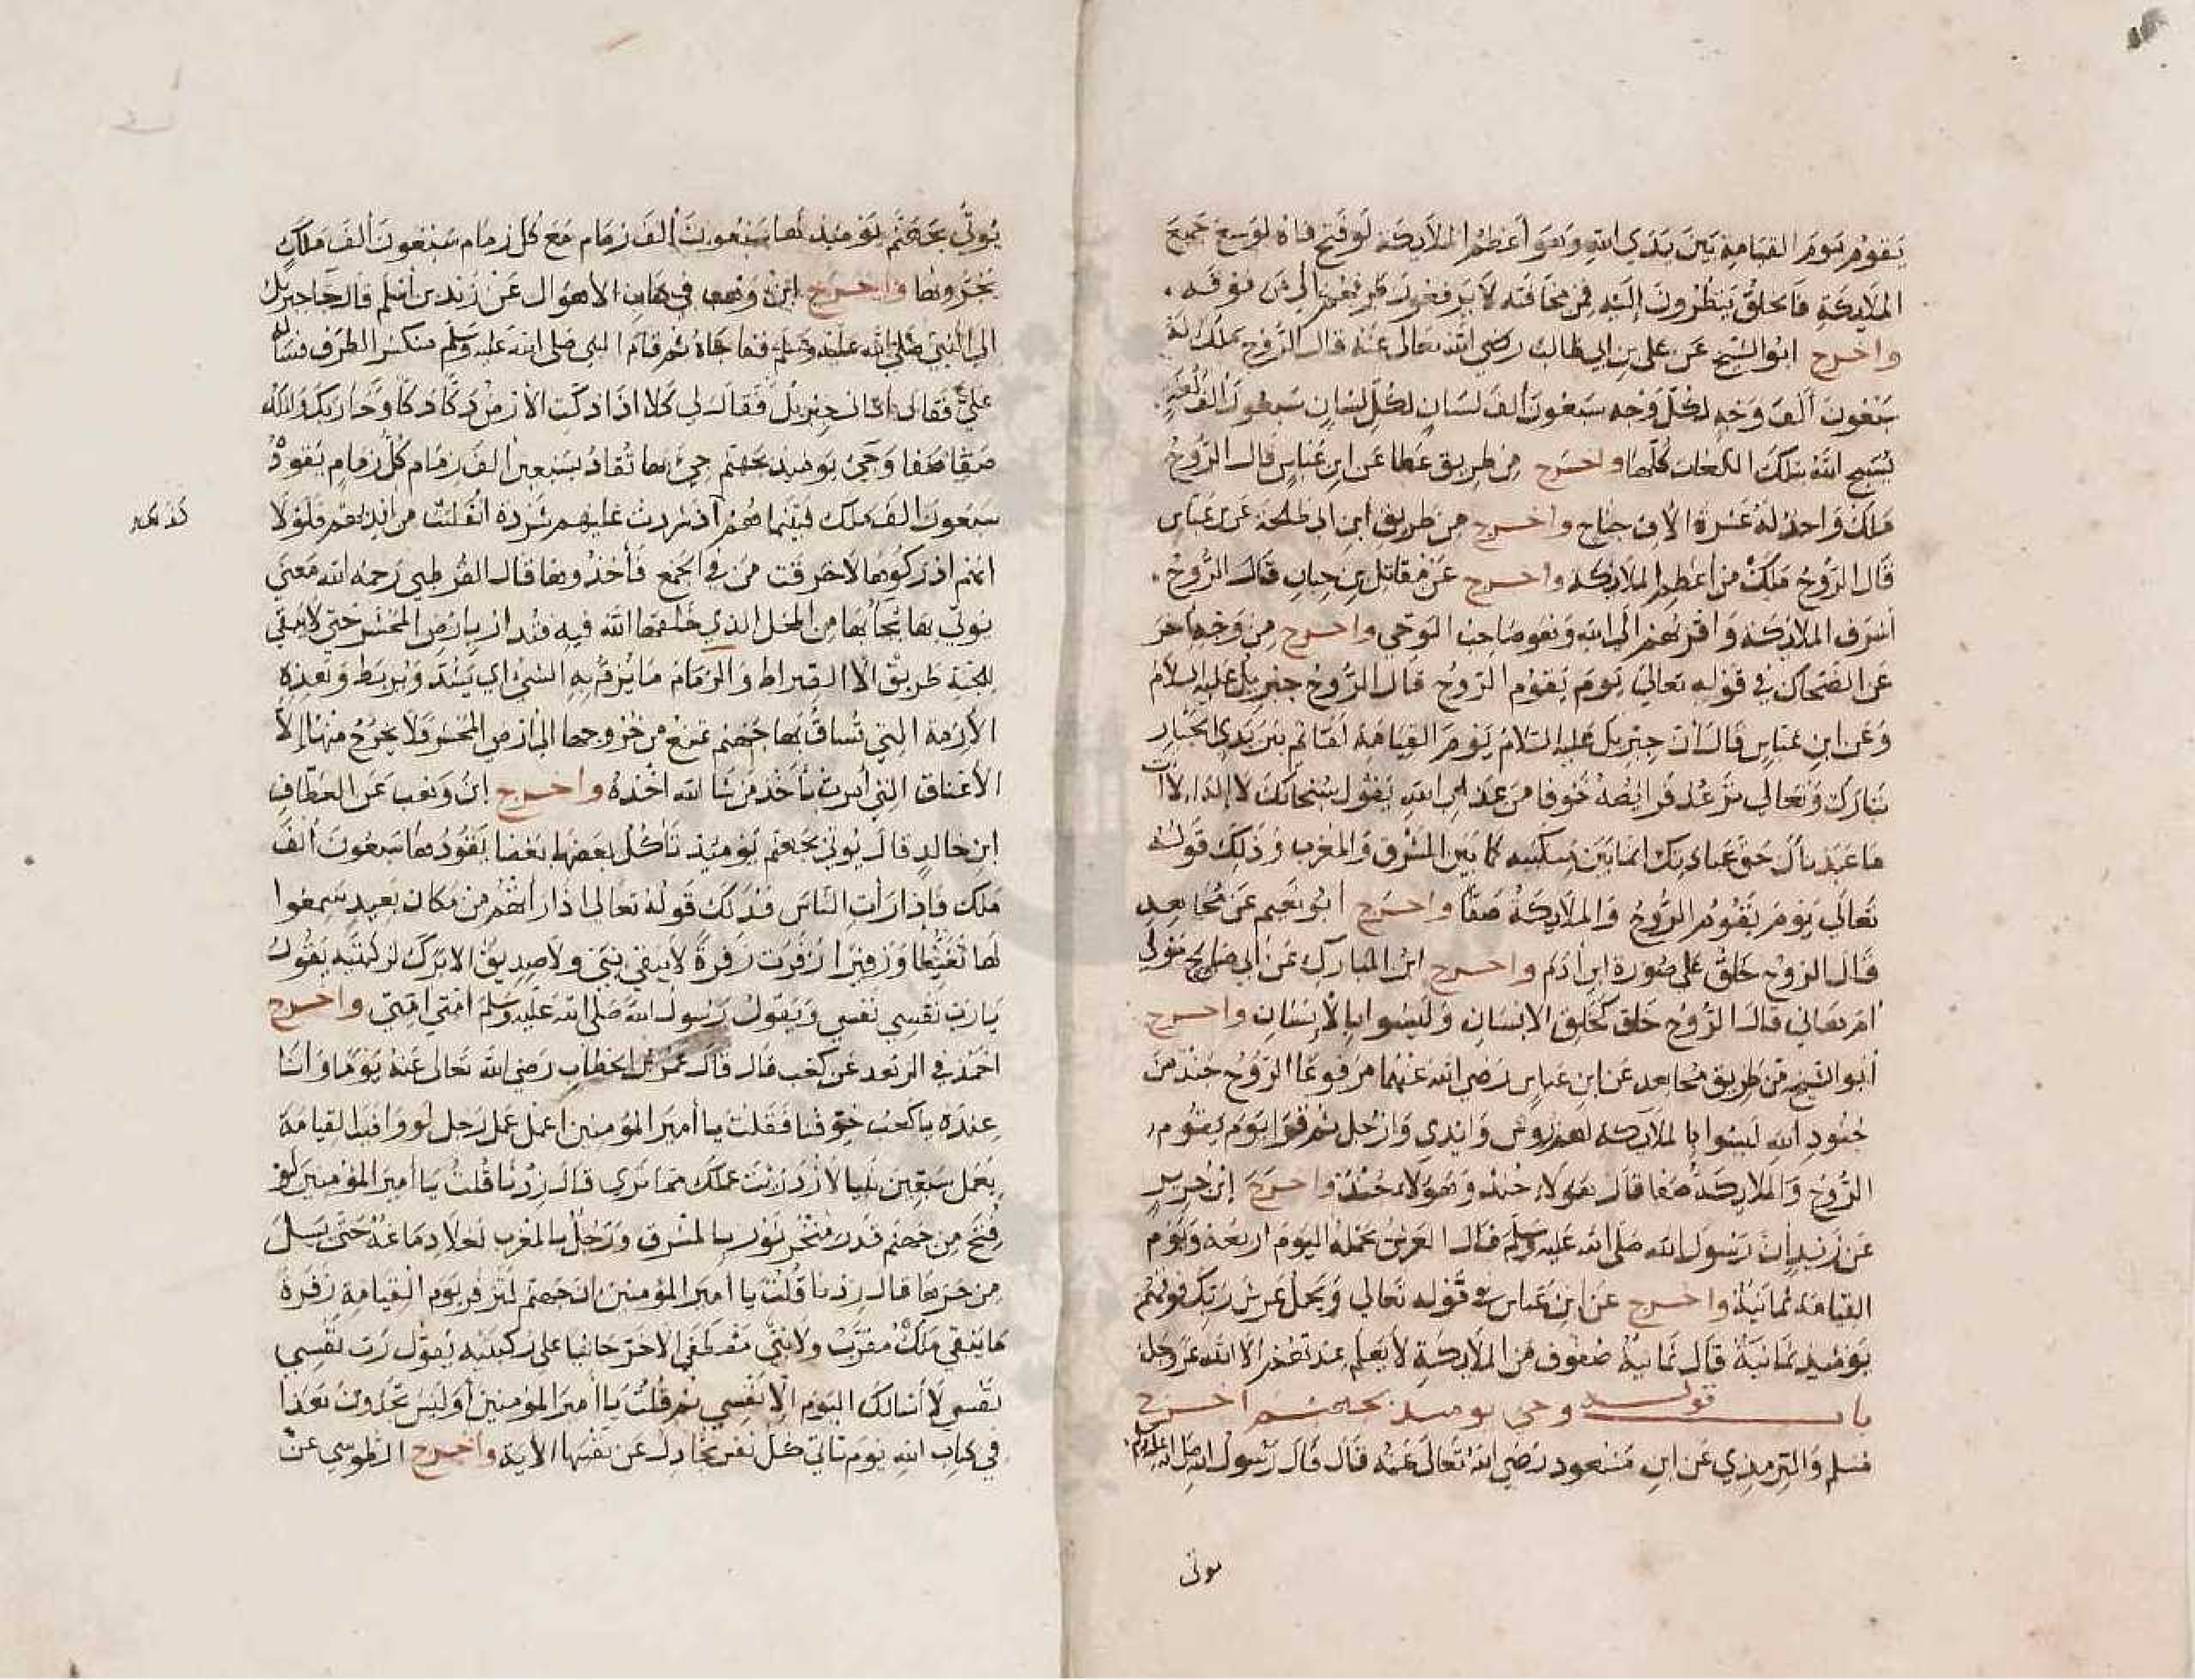 يَقومُ يَومَ القيَامَةِ بَينَ يَدَيِ اللهِ وَهوَ أعظمُ الملَائِكَة لَو فَتح فاهُ لوَسِعَ جَميعَ
الملَائِكةِ فَالخلقُ يَنظرُونَ إليَهِ فمِن مخَافَتِه لَا يَرفعُونَ طَرفهم إلى مَن فوقَه
واخرج ابو الشيخ عَن علي بن ابي طالب رضي الله تعالى عنه قال الرُّوح مَلك لهُ
سَبعُونَ ألفَ وَجهٍ لكلّ وَجه سَبعُونَ ألفَ لسَانٍ لكُلّ لسَانٍ سَبعُونَ ألفَ لُغَةٍ
يُسَبح اللهَ بتلكَ اللغات كُلّهَا واخرج مِن طريق عَطا عَن ابن عَبّاسٍ قال الرُّوحُ
مَلكٌ وَاحدٌ لهُ عَشرة الاف جنَاح واخرج مِن طريق ابن ابي طلحَة عَن ابن عَبّاسٍ
قَال الرُّوحُ مَلكٌ من اعظمِ الملَائكة واخرج عَن مقاتل بن حيان قَالَ الرُّوحُ
أشرَف الملَائكة وَاقربُهُم الى الله وَهو صَاحبُ الوَحي واخرج مِن وَجه آخرَ
عَن الضحاك في قَولهِ تعَالى يَومَ يَقومُ الرّوحُ قال الرُّوحُ جبريلُ عَليه السلَام
وَعَن ابن عَبّاس قالَ انّ جبريل عَليه السّلَام يَومَ القيامَة لقائم بَين يَدي الجبّار
تبارَك وَتعَالى ترعُد فرَائصُهُ خَوفا من عَذاب اللهِ يَقولُ سُبحانكَ لا إلهَ إلا أنت
مَا عَبدنَاك حَق عبَادتِك انّ مَا بَين مَنكبَيه كما بَين المشرق وَالمغرب وَذلِكَ قَولهُ
تعَالى يَومَ يَقومُ الرُّوحُ وَالملَائكةُ صَفّا واخرج أبو نعَيم عَن مُجَاهد
قَال الرّوح خلقٌ على صُورة ابن آدَم واخرج ابن المبَارَك عَن أبي صَالِح مَولى
أم هَاني قالَ الرّوحُ خَلق كَخَلقِ الانسَان وَليسُوا بالإنسَانِ واخرج
أبو الشيخ مِن طَريق مُجَاهد عَن ابن عَباس رَضي الله عَنهُما مَرفوعًا الرّوحُ جندٌ من
جُنُودِ الله لَيسُوا بالملَائكة لهم رُؤس وَايدي وَارجُل ثم قرَا يَومَ يَقومُ
الرُّوحُ وَالملَائكَةُ صَفا قالَ هَؤلَاءِ جُندٌ وَهَؤلَاءِ جُندٌ واخرج ابنُ جَرير
عَن زَيدٍ أنّ رَسُول الله صَلى الله عَليه وسَلّم قالَ العَرشُ يَحملهُ اليَومَ اربعَة وَيَوم
القيامَة ثمانيَة واخرج عَن ابن عَباس في قَوله تعَالى وَيحملُ عَرشَ رَبّكَ فوقهُم
يَومَئِذ ثمانيَةٌ قالَ ثمانيَةُ صُفوف مِن الملَائكةِ لا يَعلم عِدتهُم إلا الله عَزّ وَجَل
باب قولـه وجي يومئذ بجهنم اخرج
مُسلم وَالترمِذي عَن ابن مَسعُود رَضيَ الله تعَالى عَنهُ قَال قَالَ رَسُول الله صَلى الله عليه وسلم
يوتى
يُوتَى بجَهَنّم يَومَئِذ لهَا سَبعُونَ ألف زمَام مَعَ كُل زمَام سَبعُونَ ألف مَلَكٍ
يَجُرّونهَا واخرج ابن وَهب في كتَاب الأهوَال عَن زَيد بن أسلم قالَ جَا جبريلُ
الى النبي صَلى الله عَليه وسَلم فناجَاهُ ثم قامَ النبي صَلى الله عَليه وسَلّم منكسَر الطرف فسَأله
عليّ فقَال أتَاني جبريلُ فقَالَ لي كَلا اذَا دُكّت الأرضُ دَكّا دَكّا وَجَا رَبكَ وَالملكُ
صَفّا صَفا وَجيَ يَومئِذٍ بجَهنّم جيَ بهَا تُقَادُ بسَبعين الف زمَام كُلّ زمَامٍ يَقودُهُ
سَبعُونَ الفَ مَلك فبَينما هُم اذ شردَت عليهم شَردَة انفلتت من ايديهم فلَولَا
كذلك
انّهم ادركُوهَا لأحرَقَت مَن في الجمع فأخَذُوهَا قالَ القُرطبي رَحمَه الله مَعنى
يُوتى بهَا يُجَاءُ بهَا مِن المحَل الذي خَلقَهَا الله فيه فتُدار بارض المحشَر حَتى لا يَبقى
للجنّة طَريقٌ إلا الصّراط وَالزمَام مَا يُزَمُّ بهِ الشيءُ اي يُشدّ وَيُربَط وَهَذِه
الأزمّة التي تُسَاقُ بهَا جَهنم تمنع من خُرُوجهَا الى ارض المحشر فلا يَخرُجُ منهَا إلا
الأعناق التي أمرت بأخذ مَن شَا الله اخذهُ واخرج ابن وَهب عَن العطّاف
ابن خالدٍ قالَ يُوتى بجَهَنم يَومَئذ تأكلُ بَعضهَا بَعضا يَقُودُهَا سَبعُونَ ألفَ
مَلك فإذا رَأت النّاسَ فَذلكَ قَوله تعَالى اذَا رَأتهُم من مَكان بَعيدٍ سَمِعُوا
لهَا تَغيّظا وَزَفيرًا زَفَرَت زَفرَةً لا يَبقى نبيّ وَلا صدِيقٌ الا بَرَكَ لركبَتيه يَقُول
يَا رَبّ نَفسي نَفسي وَيَقولُ رَسُول الله صَلى الله عَليه وَسَلّم امتي امتي واخرج
احمَد في الزهد عَن كعبٍ قالَ قالَ عمَر بن الخطاب رَضي الله تعَالى عَنه يَومَا وَانَا
عِندَه يا كَعبُ خَوّفنَا فقُلتُ يَا أميرَ المؤمنين اعمَل عَمَل رَجل لو وَافَيتَ القيامَة
بعَمل سَبعين نبيا لازدَريتَ عملك مما تَرى قالَ زِدنا قُلتُ يَا أميرَ المؤمنين لو
فُتحَ مِن جَهنم قَدر منخر ثَور بالمشرق وَرَجُلٌ بالمغرب لغلا دِمَاغهُ حَتى يَسِيلَ
مِن حَرّهَا قالَ زِدنا قلتُ يَا اميرَ المؤمنينَ ان جَهنم لتَزفر يَوم القِيامَةِ زَفرَةً
مَا يَبقى مَلكٌ مُقَرّبٌ وَلا نبيّ مُصطَفى الا خَرّ جَاثيا على ركبَتَيه يَقُول رَبّ نَفسي
نَفسي لا أسَالكَ اليَومَ إلا نفسي ثم قُلتُ يَا أميرَ المؤمنين أوَ لَيسَ تجدُونَ هَذا
في كتَابِ اللهِ يَومَ تَاتي كُلّ نفس تجَادِل عَن نَفسِهَا الآية واخرج الطوسي عَنّ